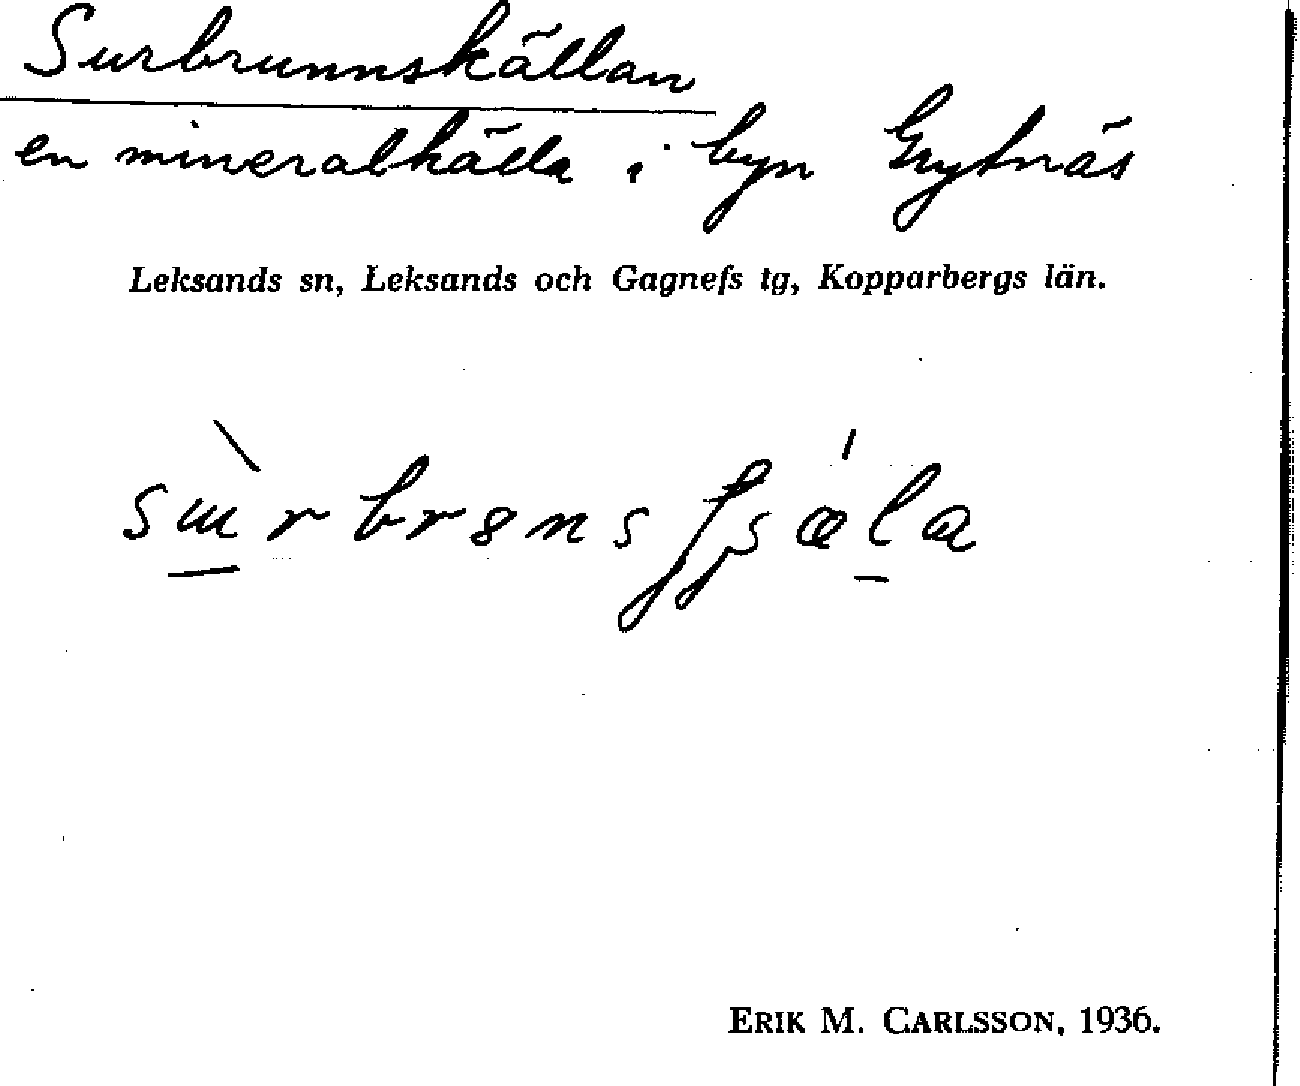 Surbrunnskällan
en mineralkälla i byn Grytnäs
Leksands sn, Leksands och Gagnefs tg, Kopparbergs län.
ERIK M. CARLSSON, 1936.